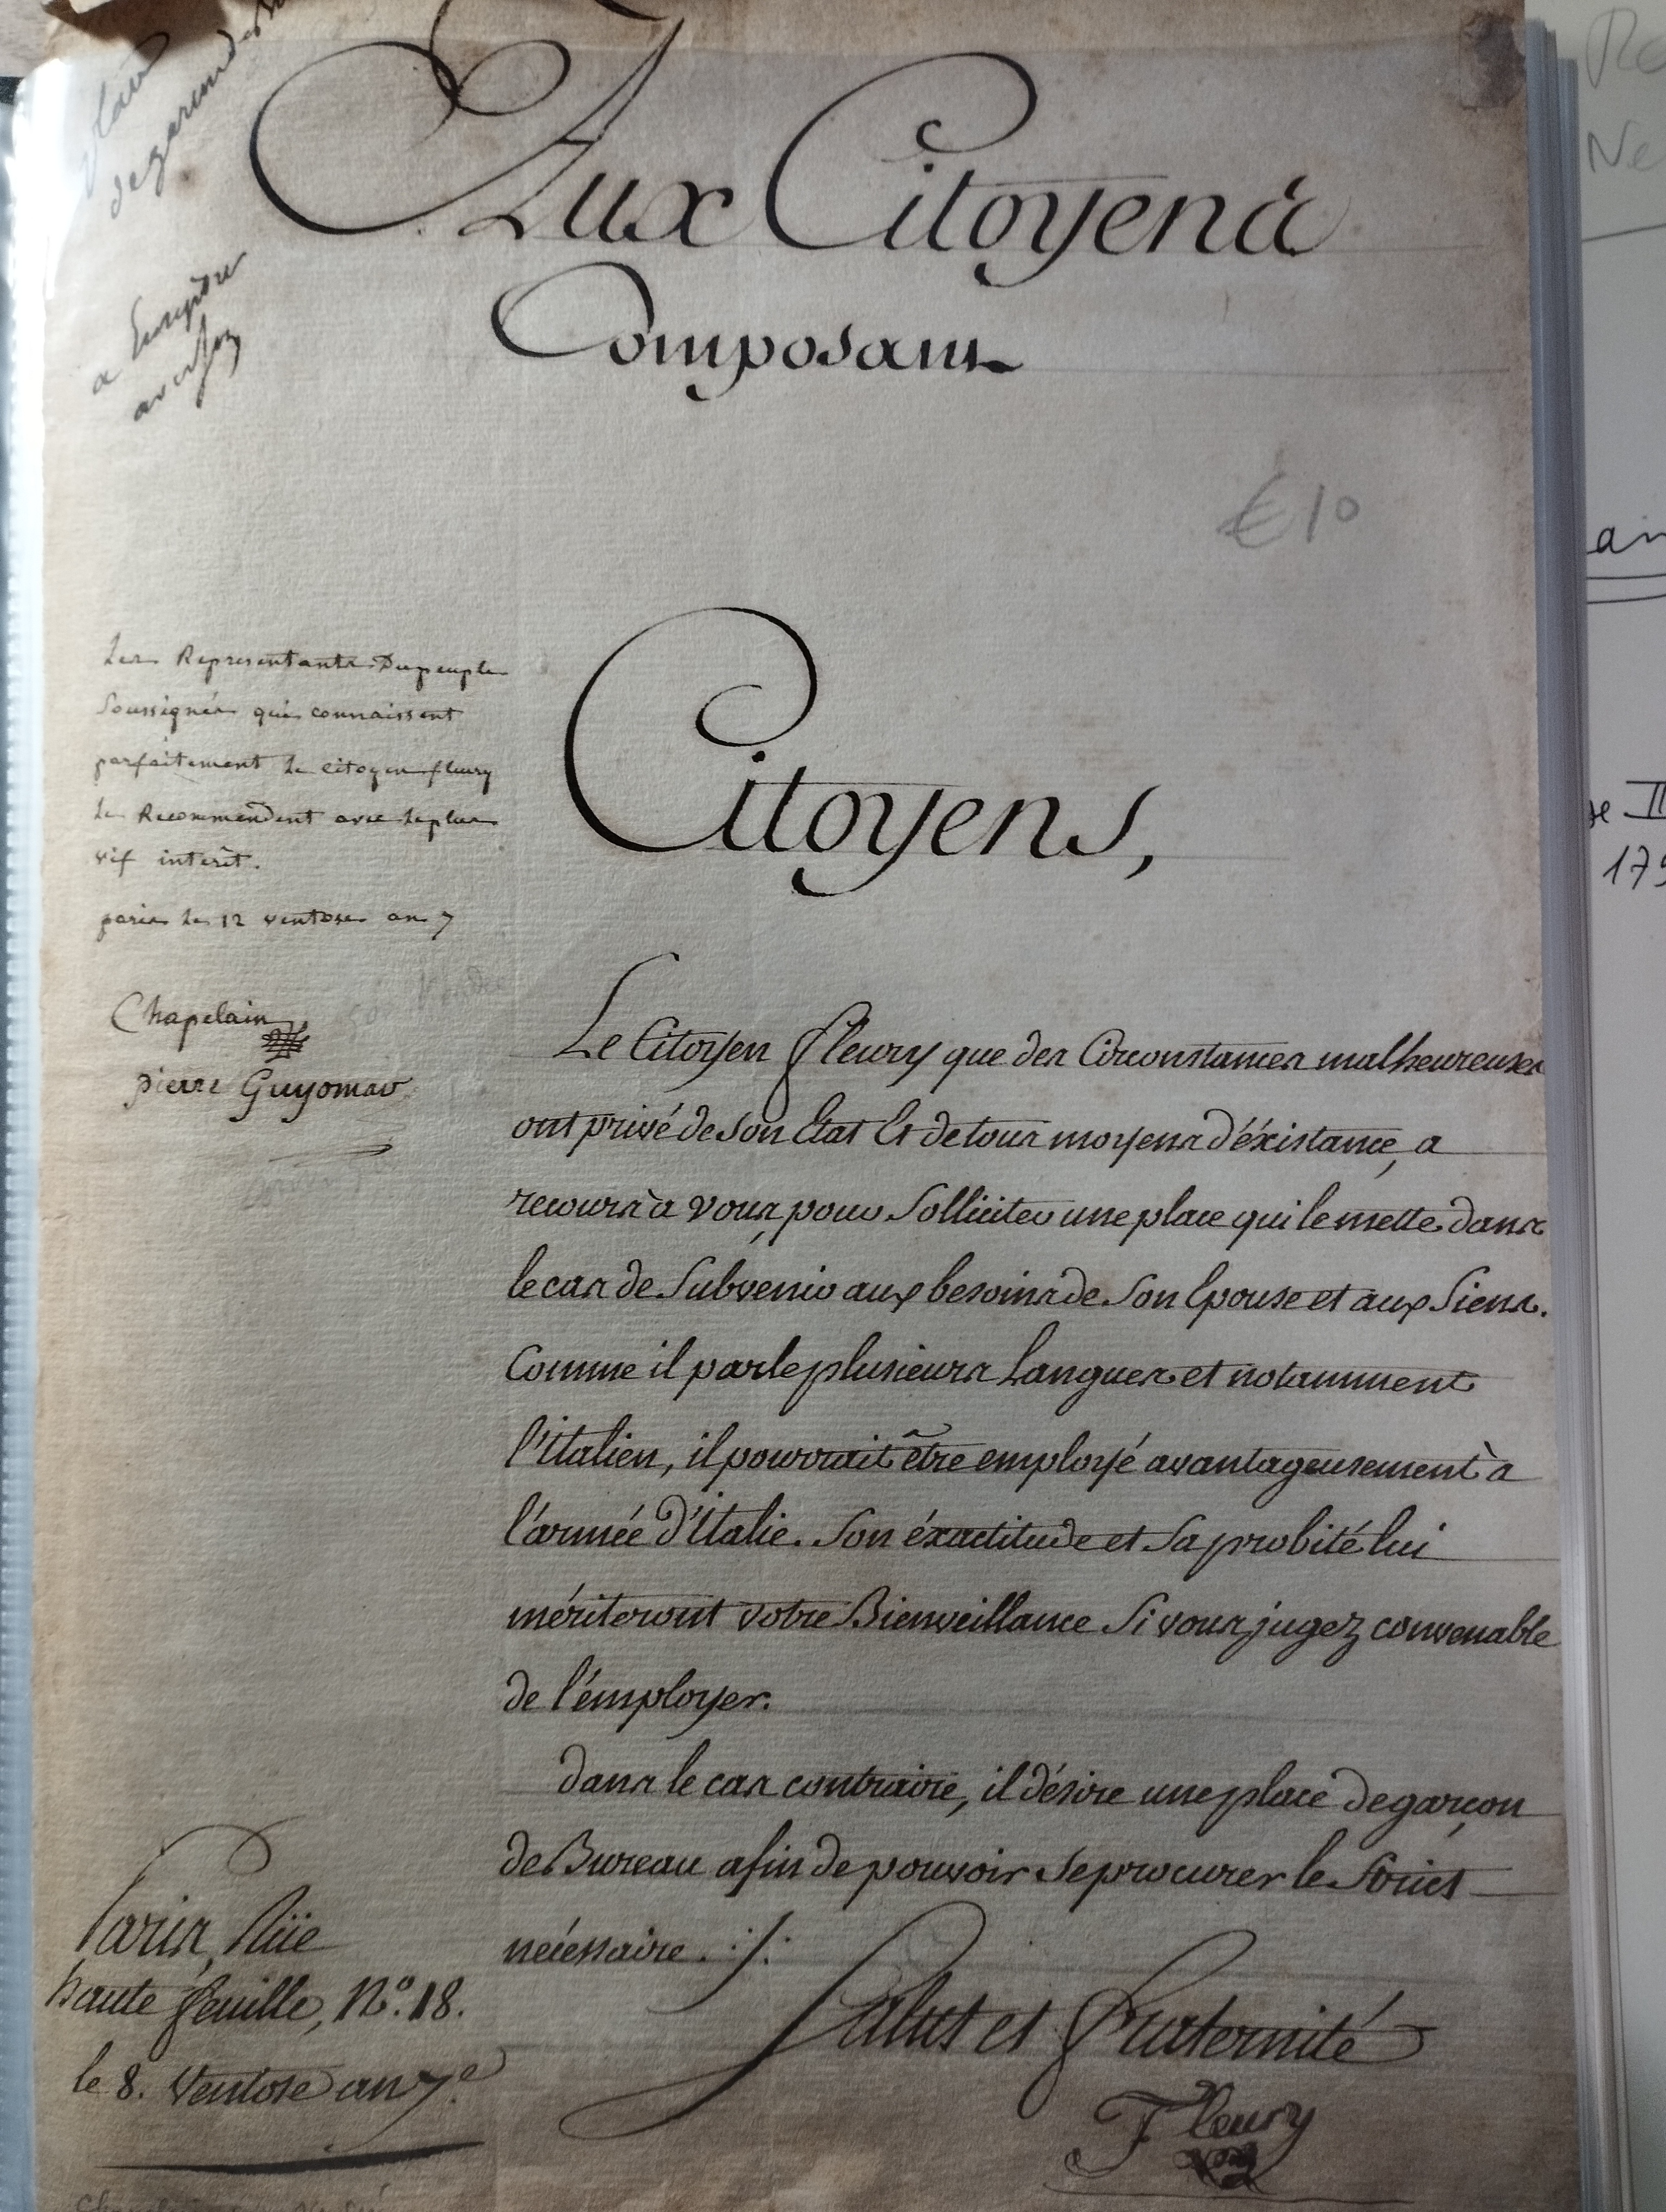 Aux Citoyens
Composant
€10
Les Representants Du peuple
Soussignés qui connaissent
parfaitement le citoyen fleury
le Recommendent avec le plus
vif interêt.
paris le 12 ventose an 7
Chapelain
pierre Guyomar
Citoyens,
Le Citoyen fleury que des Circonstances malheureuses
ont privé de son Etat Et de tous moyens d'éxistance, a
recours à vous, pour Solliciter une place qui le mette dans
le cas de Subvenir aux besoins de Son Epouse et aux Siens.
Comme il parle plusieurs Langues et notamment
l'italien, il pourrait être employé avantageusement à
l'armée d'Italie. Son éxactitude et Sa probité lui
mériteront votre Bienveillance Si vous jugez convenable
de l'émployer.
dans le cas contraire, il désire une place de garçon
de Bureau afin de pouvoir Se procurer le Strict
nécessaire ./.
Salut et fraternité
Fleury
Paris, Rüe
haute feuille, N.º 18.
le 8. Ventose an 7.e